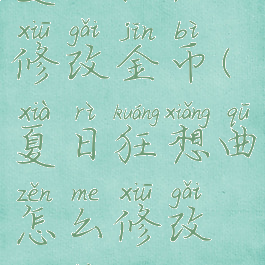 xiū gǎi jīn bì
修改金币(
xià rì kuáng xiǎng qū
夏日狂想曲
zěn me xiū gǎi
怎么修改